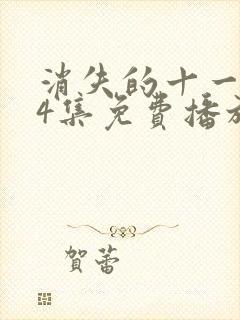 消失的十一
4集免費播放
賀蕾